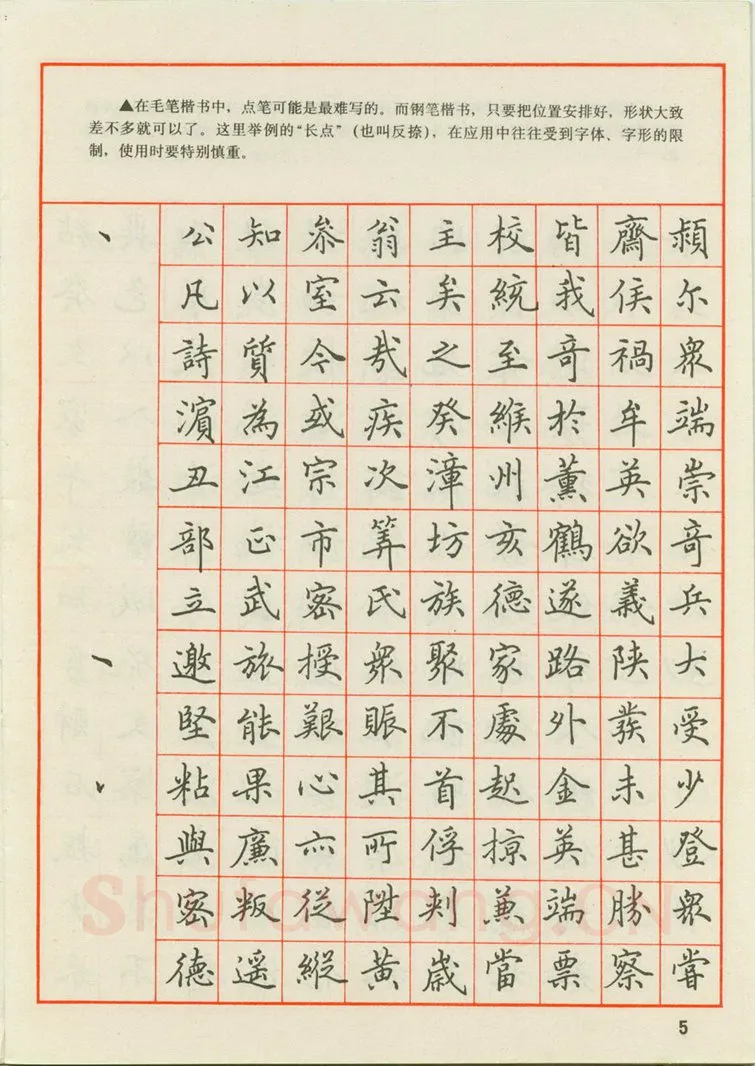 ▲在毛笔楷书中，点笔可能是最难写的。而钢笔楷书，只要把位置安排好，形状大致
差不多就可以了。这里举例的“长点”（也叫反捺），在应用中往往受到字体、字形的限
制，使用时要特别慎重。
公知参翁主校皆齊潁
凡以室云矣統我侯尔
詩質今哉之至奇禍眾
濱為或疾癸維於牟端
丑江宗次漳州薰英崇
部正市筭坊亥鶴欲奇
立武密氏族德遂義兵
邀旅授眾聚家路陕大
堅能艱賑不處外發受
粘果心其首起金未少
與廉亦所俘掠英甚登
密叛從陞刺兼端勝眾
德遥縱黄歲當票察嘗
Shufawang.CN
5